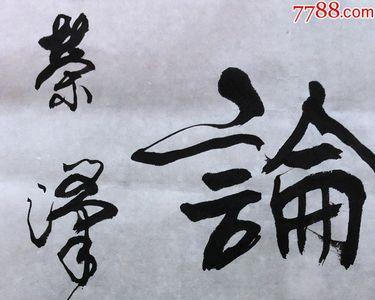 7788.com
論
榮澤